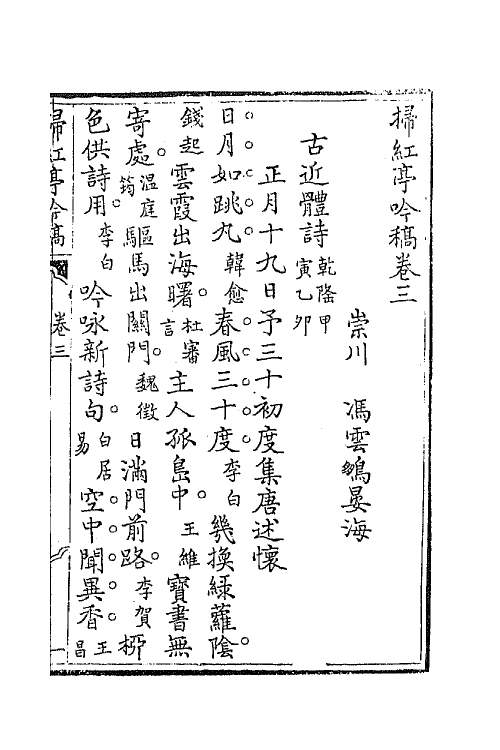 掃紅亭吟稿卷三
崇川　馮雲鵷晏海
古近體詩乾隆甲寅乙卯
正月十九日予三十初度集唐述懷
日月如跳丸韓愈春風三十度李白幾換綠蘿陰
錢起雲霞出海曙杜審言主人孤島中王維寶書無
寄處溫庭筠驅馬出關門魏徵日滿門前路李賀柳
色供詩用李白吟咏新詩句白居易空中聞異香王昌
掃紅亭吟稿
卷三
一